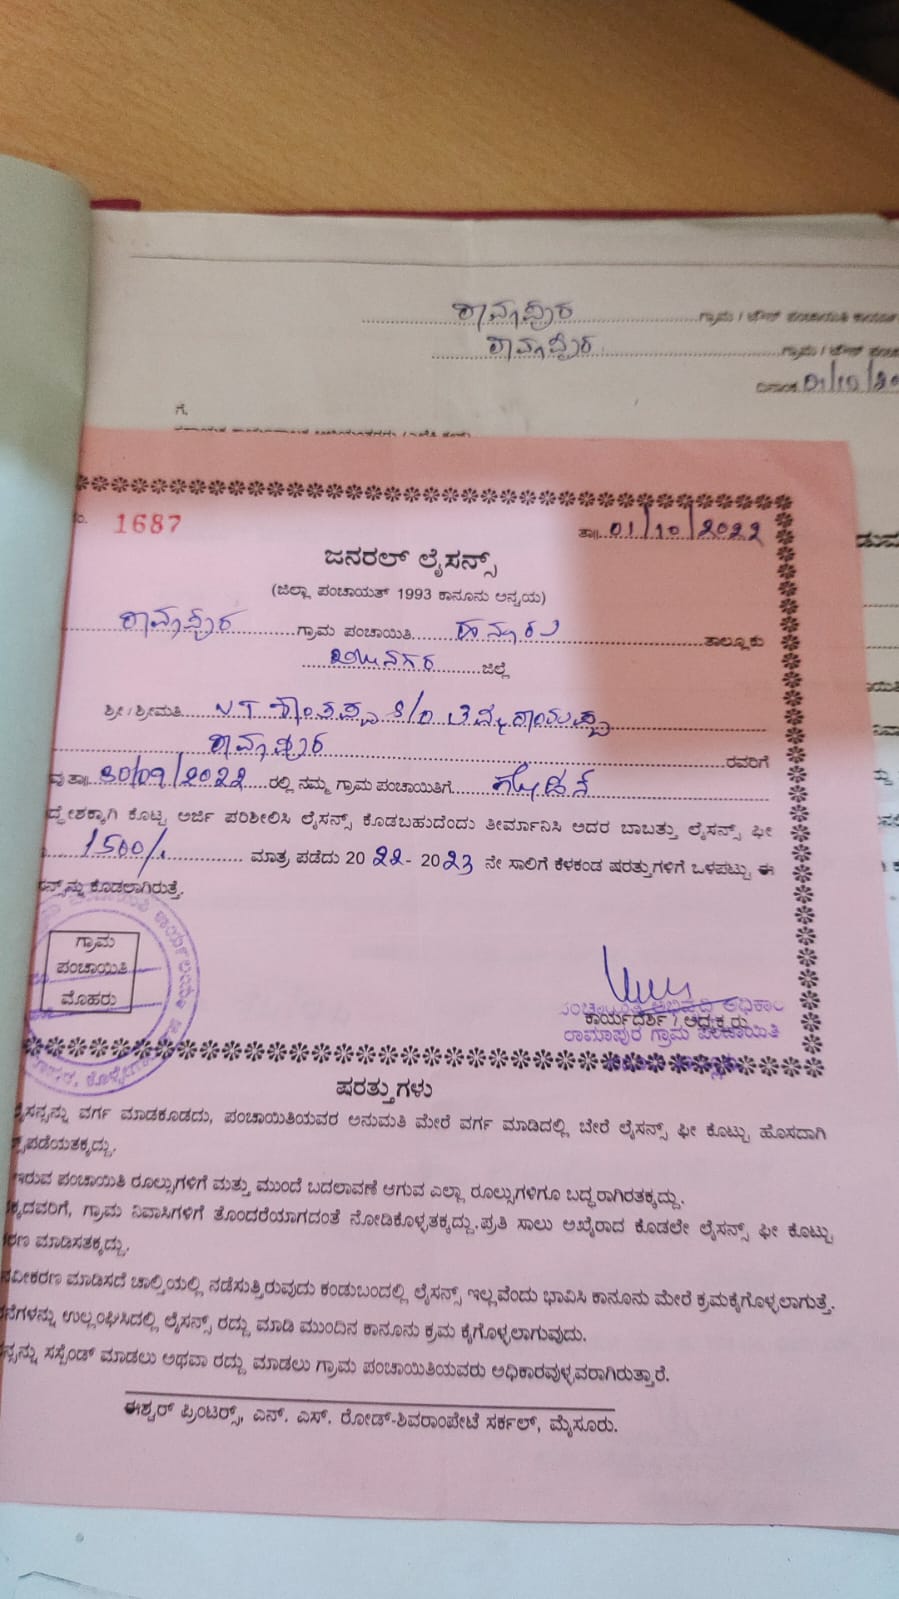 ರಾಮಾಪುರ ಗ್ರಾಮ / ಟೌನ್ ಪಂಚಾಯಿತಿ
ರಾಮಾಪುರ ಗ್ರಾಮ / ಟೌನ್
ದಿನಾಂಕ 01/10/20
ಗೆ,
1687 ತಾ॥ 01/10/2022
ಜನರಲ್ ಲೈಸನ್ಸ್
(ಜಿಲ್ಲಾ ಪಂಚಾಯತ್ 1993 ಕಾನೂನು ಅನ್ವಯ)
ರಾಮಾಪುರ ಗ್ರಾಮ ಪಂಚಾಯಿತಿ ಹನೂರು ತಾಲ್ಲೂಕು
ಚಾ.ನಗರ ಜಿಲ್ಲೆ
ಶ್ರೀ / ಶ್ರೀಮತಿ
ರಾಮಾಪುರ ರವರಿಗೆ
ತಾ॥ 30/09/2022 ರಲ್ಲಿ ನಮ್ಮ ಗ್ರಾಮ ಪಂಚಾಯಿತಿಗೆ
ದ್ದೇಶಕ್ಕಾಗಿ ಕೊಟ್ಟ ಅರ್ಜಿ ಪರಿಶೀಲಿಸಿ ಲೈಸನ್ಸ್ ಕೊಡಬಹುದೆಂದು ತೀರ್ಮಾನಿಸಿ ಅದರ ಬಾಬತ್ತು ಲೈಸನ್ಸ್ ಫೀ
1500/. ಮಾತ್ರ ಪಡೆದು 2022-2023 ನೇ ಸಾಲಿಗೆ ಕೆಳಕಂಡ ಷರತ್ತುಗಳಿಗೆ ಒಳಪಟ್ಟು ಈ
ನ್ಸ್‌ನ್ನು ಕೊಡಲಾಗಿರುತ್ತೆ.
ಗ್ರಾಮ
ಪಂಚಾಯಿತಿ
ಮೊಹರು
ಕಾರ್ಯದರ್ಶಿ / ಅಧ್ಯಕ್ಷರು
ರಾಮಾಪುರ ಗ್ರಾಮ ಪಂಚಾಯಿತಿ
ಷರತ್ತುಗಳು
ಲೈಸನ್ಸನ್ನು ವರ್ಗ ಮಾಡಕೂಡದು, ಪಂಚಾಯಿತಿಯವರ ಅನುಮತಿ ಮೇರೆ ವರ್ಗ ಮಾಡಿದಲ್ಲಿ ಬೇರೆ ಲೈಸನ್ಸ್ ಫೀ ಕೊಟ್ಟು ಹೊಸದಾಗಿ
ಪಡೆಯತಕ್ಕದ್ದು.
ಇರುವ ಪಂಚಾಯಿತಿ ರೂಲ್ಸುಗಳಿಗೆ ಮತ್ತು ಮುಂದೆ ಬದಲಾವಣೆ ಆಗುವ ಎಲ್ಲಾ ರೂಲ್ಸುಗಳಿಗೂ ಬದ್ಧರಾಗಿರತಕ್ಕದ್ದು.
ಕ್ಕದವರಿಗೆ, ಗ್ರಾಮ ನಿವಾಸಿಗಳಿಗೆ ತೊಂದರೆಯಾಗದಂತೆ ನೋಡಿಕೊಳ್ಳತಕ್ಕದ್ದು.ಪ್ರತಿ ಸಾಲು ಅಖೈರಾದ ಕೂಡಲೇ ಲೈಸನ್ಸ್ ಫೀ ಕೊಟ್ಟು
ರಣ ಮಾಡಿಸತಕ್ಕದ್ದು.
ನವೀಕರಣ ಮಾಡಿಸದೆ ಚಾಲ್ತಿಯಲ್ಲಿ ನಡೆಸುತ್ತಿರುವುದು ಕಂಡುಬಂದಲ್ಲಿ ಲೈಸನ್ಸ್ ಇಲ್ಲವೆಂದು ಭಾವಿಸಿ ಕಾನೂನು ಮೇರೆ ಕ್ರಮಕೈಗೊಳ್ಳಲಾಗುತ್ತೆ.
ನೆಗಳನ್ನು ಉಲ್ಲಂಘಿಸಿದಲ್ಲಿ ಲೈಸನ್ಸ್ ರದ್ದು ಮಾಡಿ ಮುಂದಿನ ಕಾನೂನು ಕ್ರಮ ಕೈಗೊಳ್ಳಲಾಗುವುದು.
ನ್ಸನ್ನು ಸಸ್ಪೆಂಡ್ ಮಾಡಲು ಅಥವಾ ರದ್ದು ಮಾಡಲು ಗ್ರಾಮ ಪಂಚಾಯಿತಿಯವರು ಅಧಿಕಾರವುಳ್ಳವರಾಗಿರುತ್ತಾರೆ.
ಈಶ್ವರ್ ಪ್ರಿಂಟರ್ಸ್, ಎನ್. ಎಸ್. ರೋಡ್-ಶಿವರಾಂಪೇಟೆ ಸರ್ಕಲ್, ಮೈಸೂರು.